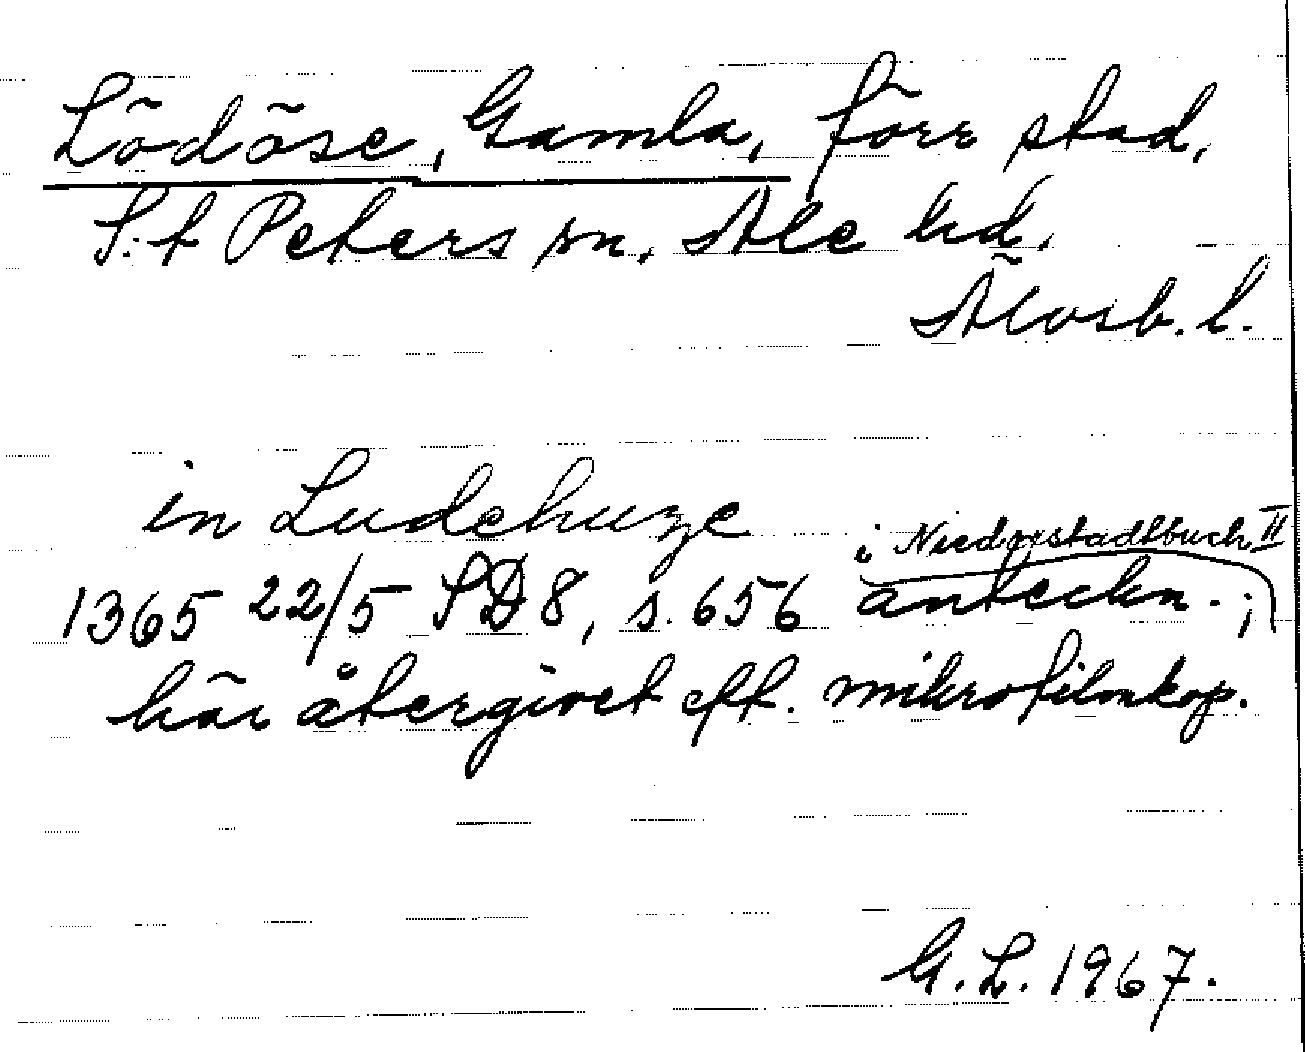 Lödöse, Gamla, förr stad,
S:t Peters sn. Ale hd.
Älvsb. l.
in Ludehuze
i Niederstadtbuch II
1365 22/5 SD 8, s. 656 anteckn. ;
här återgivet eft. mikrofilmkop.
G. L. 1967.